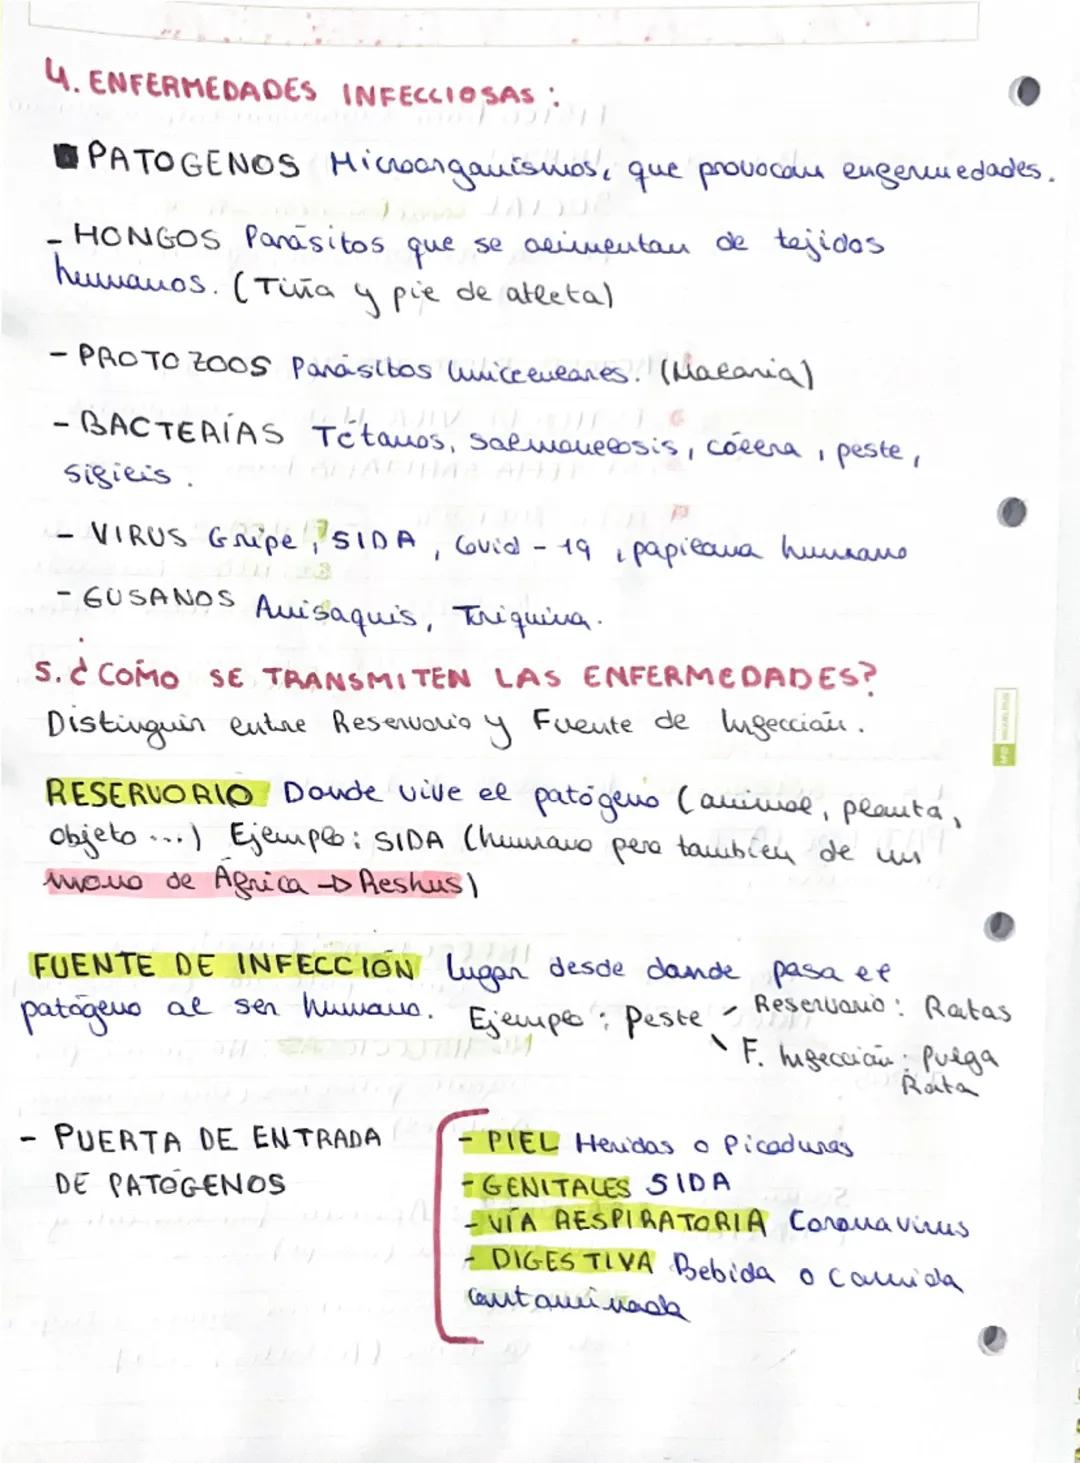 4. ENFERMEDADES INFECCIOSAS:
PATOGENOS Microorganismos, que provocan enfermedades.
- HONGOS Parásitos que se alimentan de tejidos
humanos. (Tiña y pie de atleta)
- PROTOZOOS Parásitos Unicelulares. (Malaria)
- BACTERÍAS Tétanos, salmonelosis, cólera, peste,
sífilis.
- VIRUS Gripe, SIDA, Covid-19, papiloma humano
- GUSANOS Anisaquis, Triquina.
5. ¿COMO SE TRANSMITEN LAS ENFERMEDADES?
Distinguir entre Reservorio y Fuente de Infección.
RESERVORIO Donde vive el patógeno (animal, planta,
objeto...) Ejemplo: SIDA (humano pero tambien de un
mono de África → Reshus)
FUENTE DE INFECCIÓN lugar desde donde pasa el
patógeno al ser humano. Ejemplo: Peste - Reservorio: Ratas
\ F. Infección: Pulga
Rata
- PUERTA DE ENTRADA
DE PATÓGENOS
- PIEL Heridas o Picaduras
- GENITALES SIDA
- VÍA RESPIRATORIA Coronavirus
- DIGESTIVA Bebida o comida
contaminada